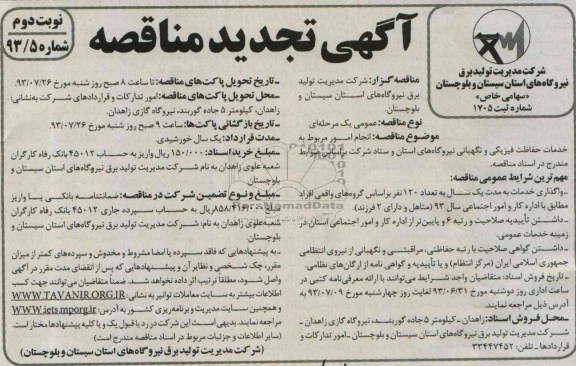 نوبت دوم
شماره ۹۳/۵
آگهی تجدید مناقصه
شرکت مدیریت تولید برق
نیروگاه‌های استان سیستان و بلوچستان
«سهامی خاص»
شماره ثبت ۱۷۰۵
مناقصه گزار: شرکت مدیریت تولید
برق نیروگاه‌های استان سیستان و
بلوچستان
نوع مناقصه: عمومی یک مرحله‌ای
موضوع مناقصه: انجام امور مربوط به
خدمات حفاظت فیزیکی و نگهبانی نیروگاه‌های استان و ستاد شرکت طبق شرایط
مندرج در اسناد مناقصه.
مهم‌ترین شرایط عمومی مناقصه:
ـ واگذاری خدمات به مدت یک سال به تعداد ۱۲۰ نفر براساس گروه‌های واقعی افراد
مطابق با اداره کار و امور اجتماعی سال ۹۳ (متاهل و دارای ۲ فرزند).
ـ داشتن تأییدیه صلاحیت و رتبه ۶ و پایین‌تر از اداره کار و امور اجتماعی استان در
زمینه خدمات عمومی.
ـ داشتن گواهی صلاحیت با رتبه حفاظتی، مراقبتی و نگهبانی از نیروی انتظامی
جمهوری اسلامی ایران (مرکز انتظام) و یا تأییدیه و گواهی نامه از ارگان‌های نظامی.
ـ تاریخ فروش اسناد: متقاضیان واجد شرایط می‌توانند با ارائه معرفی‌نامه کتبی در
ساعت اداری روز دوشنبه مورخ ۹۳/۰۶/۳۱ لغایت روز چهارشنبه مورخ ۹۳/۰۷/۰۹ به
آدرس ذیل مراجعه نمایند.
ـ محل فروش اسناد: زاهدان ـ کیلومتر ۵ جاده گوربند، نیروگاه گازی زاهدان ـ
شرکت مدیریت تولید برق نیروگاه‌های استان سیستان و بلوچستان ـ امور تدارکات و
قراردادها ـ تلفن: ۳۳۴۴۷۴۵۲
ـ تاریخ تحویل پاکت‌های مناقصه: تا ساعت ۸ صبح روز شنبه مورخ ۹۳/۰۷/۲۶.
ـ محل تحویل پاکت‌های مناقصه: امور تدارکات و قراردادهای شرکت به‌نشانی:
زاهدان، کیلومتر ۵ جاده گوربند، نیروگاه گازی زاهدان.
ـ تاریخ بازگشائی پاکت‌ها: ساعت ۹ صبح روز شنبه مورخ ۹۳/۰۷/۲۶
ـ مدت قرارداد: یک سال خورشیدی.
ـ مبلغ خرید اسناد: ۱۵۰/۰۰۰ ریال واریز به حساب ۴۵۰۱۲ بانک رفاه کارگران
شعبه علوی زاهدان به نام شرکت مدیریت تولید برق نیروگاه‌های سیستان و
بلوچستان.
ـ مبلغ و نوع تضمین شرکت در مناقصه: ضمانتنامه بانکی یا واریز
ریال به حساب سپرده جاری ۴۵۰۱۲ بانک رفاه کارگران
شعبه علوی زاهدان به نام: شرکت مدیریت تولید برق نیروگاه‌های سیستان و
بلوچستان.
ـ به پیشنهادهایی که فاقد سپرده یا امضا مشروط و مخدوش و سپرده‌های کمتر از میزان
مقرر، چک شخصی و نظایر آن و پیشنهادهایی که پس از انقضای مدت مقرر در آگهی
واصل شود، مطلقاً ترتیب اثر داده نخواهد شد. ضمناً متقاضیان می‌توانند جهت کسب
اطلاعات بیشتر به سایت معاملات توانیر به نشانی: WWW.TAVANIR.ORG.IR
و همچنین سایت مدیریت و برنامه‌ریزی کشور به آدرس: WWW.iets.mporg.ir
مراجعه نمایند. بدیهی است این شرکت در رد یا قبول یک و یا کلیه پیشنهادها مختار است.
(سایر اطلاعات و جزئیات مربوط در اسناد مناقصه مندرج است)
(شرکت مدیریت تولید برق نیروگاه‌های استان سیستان و بلوچستان)
ParsNamadData